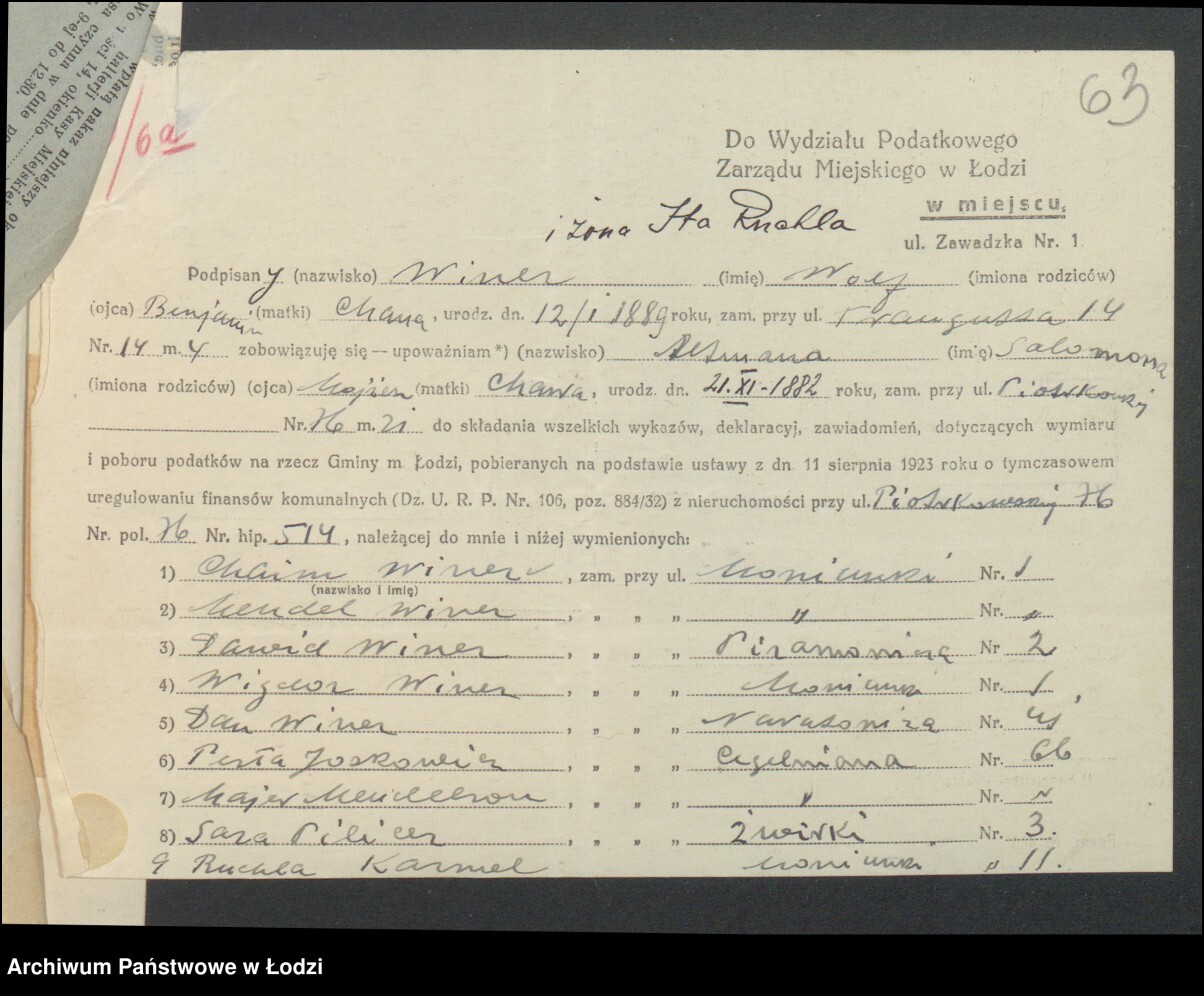 63
6a
wpłatą nakaz niniejszy
Kasy Miejskiej
14, okienko
czynna w dnie
9-ej do 12.30.
Do Wydziału Podatkowego
Zarządu Miejskiego w Łodzi
w miejscu,
ul. Zawadzka Nr. 1.
i żona Ita Ruchla
Podpisany (nazwisko) Winer (imię) Wolf (imiona rodziców)
(ojca) Benjamin (matki) Chana, urodz. dn. 12/I 1889 roku, zam. przy ul. 14
Nr. 14 m. 4 zobowiązuję się — upoważniam *) (nazwisko) Altmana (imię) Salomona
(imiona rodziców) (ojca) (matki) Chawa, urodz. dn. 21.XI-1882 roku, zam. przy ul. Piotrkowskiej
Nr. 76 m. 21 do składania wszelkich wykazów, deklaracyj, zawiadomień, dotyczących wymiaru
i poboru podatków na rzecz Gminy m. Łodzi, pobieranych na podstawie ustawy z dn. 11 sierpnia 1923 roku o tymczasowem
uregulowaniu finansów komunalnych (Dz. U. R. P. Nr. 106, poz. 884/32) z nieruchomości przy ul. Piotrkowskiej 76
Nr. pol. 76 Nr. hip. 514, należącej do mnie i niżej wymienionych:
1) Chaim Winer, zam. przy ul. Moniuszki Nr. 1
(nazwisko i imię)
2) Mendel Winer, „ „ „ „ Nr. „
3) Dawid Winer, „ „ „ Piramowicza Nr 2
4) Wigdor Winer, „ „ „ Moniuszki Nr. 1
5) Dan Winer, „ „ „ Narutowicza Nr.
6) Perla Joskowicz, „ „ „ Cegielniana Nr. 66
7) Majer Mendelson, „ „ „ „ Nr. „
8) Sara Pilicer, „ „ „ Żwirki Nr. 3.
9 Ruchla Karmel Moniuszki „ 11.
Archiwum Państwowe w Łodzi